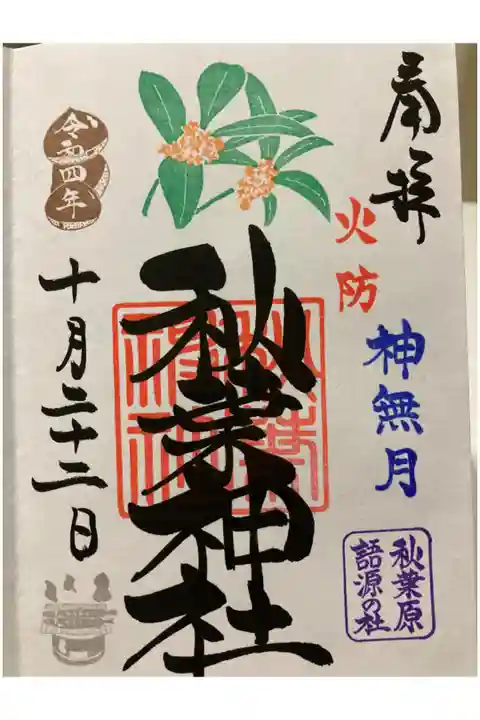 奉拝
火防
神無月
秋葉原
語源の社
秋葉神社
令和四年
十月二十二日